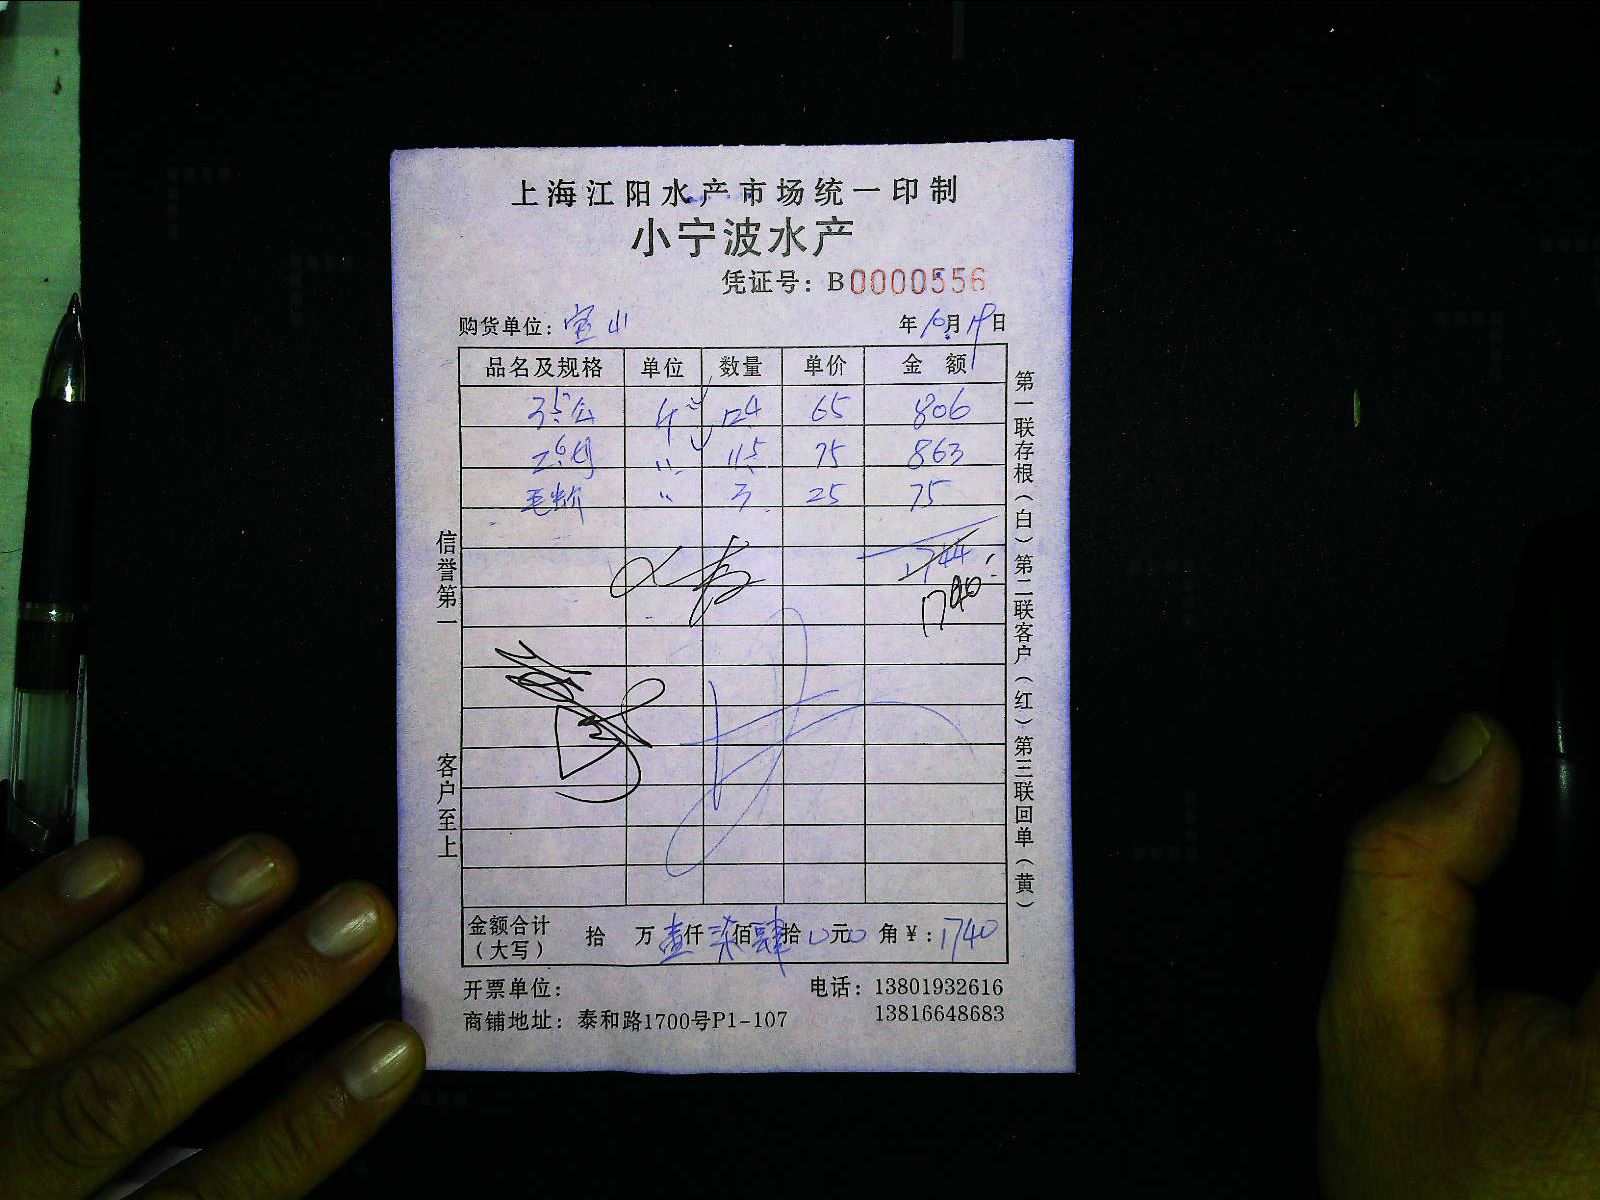 上海江阳水产市场统一印制
小宁波水产
凭证号：B0000556
购货单位：宝山 年10月19日
品名及规格 单位 数量 单价 金额
3.5公 斤 12.4 65 806
2.6母 〃 11.5 75 863
毛蚧 〃 3 25 75
1744
1740
金额合计（大写） 拾 万 壹仟 柒佰 肆拾 0元0角 ¥：1740
开票单位：
电话：13801932616
13816648683
商铺地址：泰和路1700号P1-107
信誉第一
客户至上
第一联存根（白）第二联客户（红）第三联回单（黄）